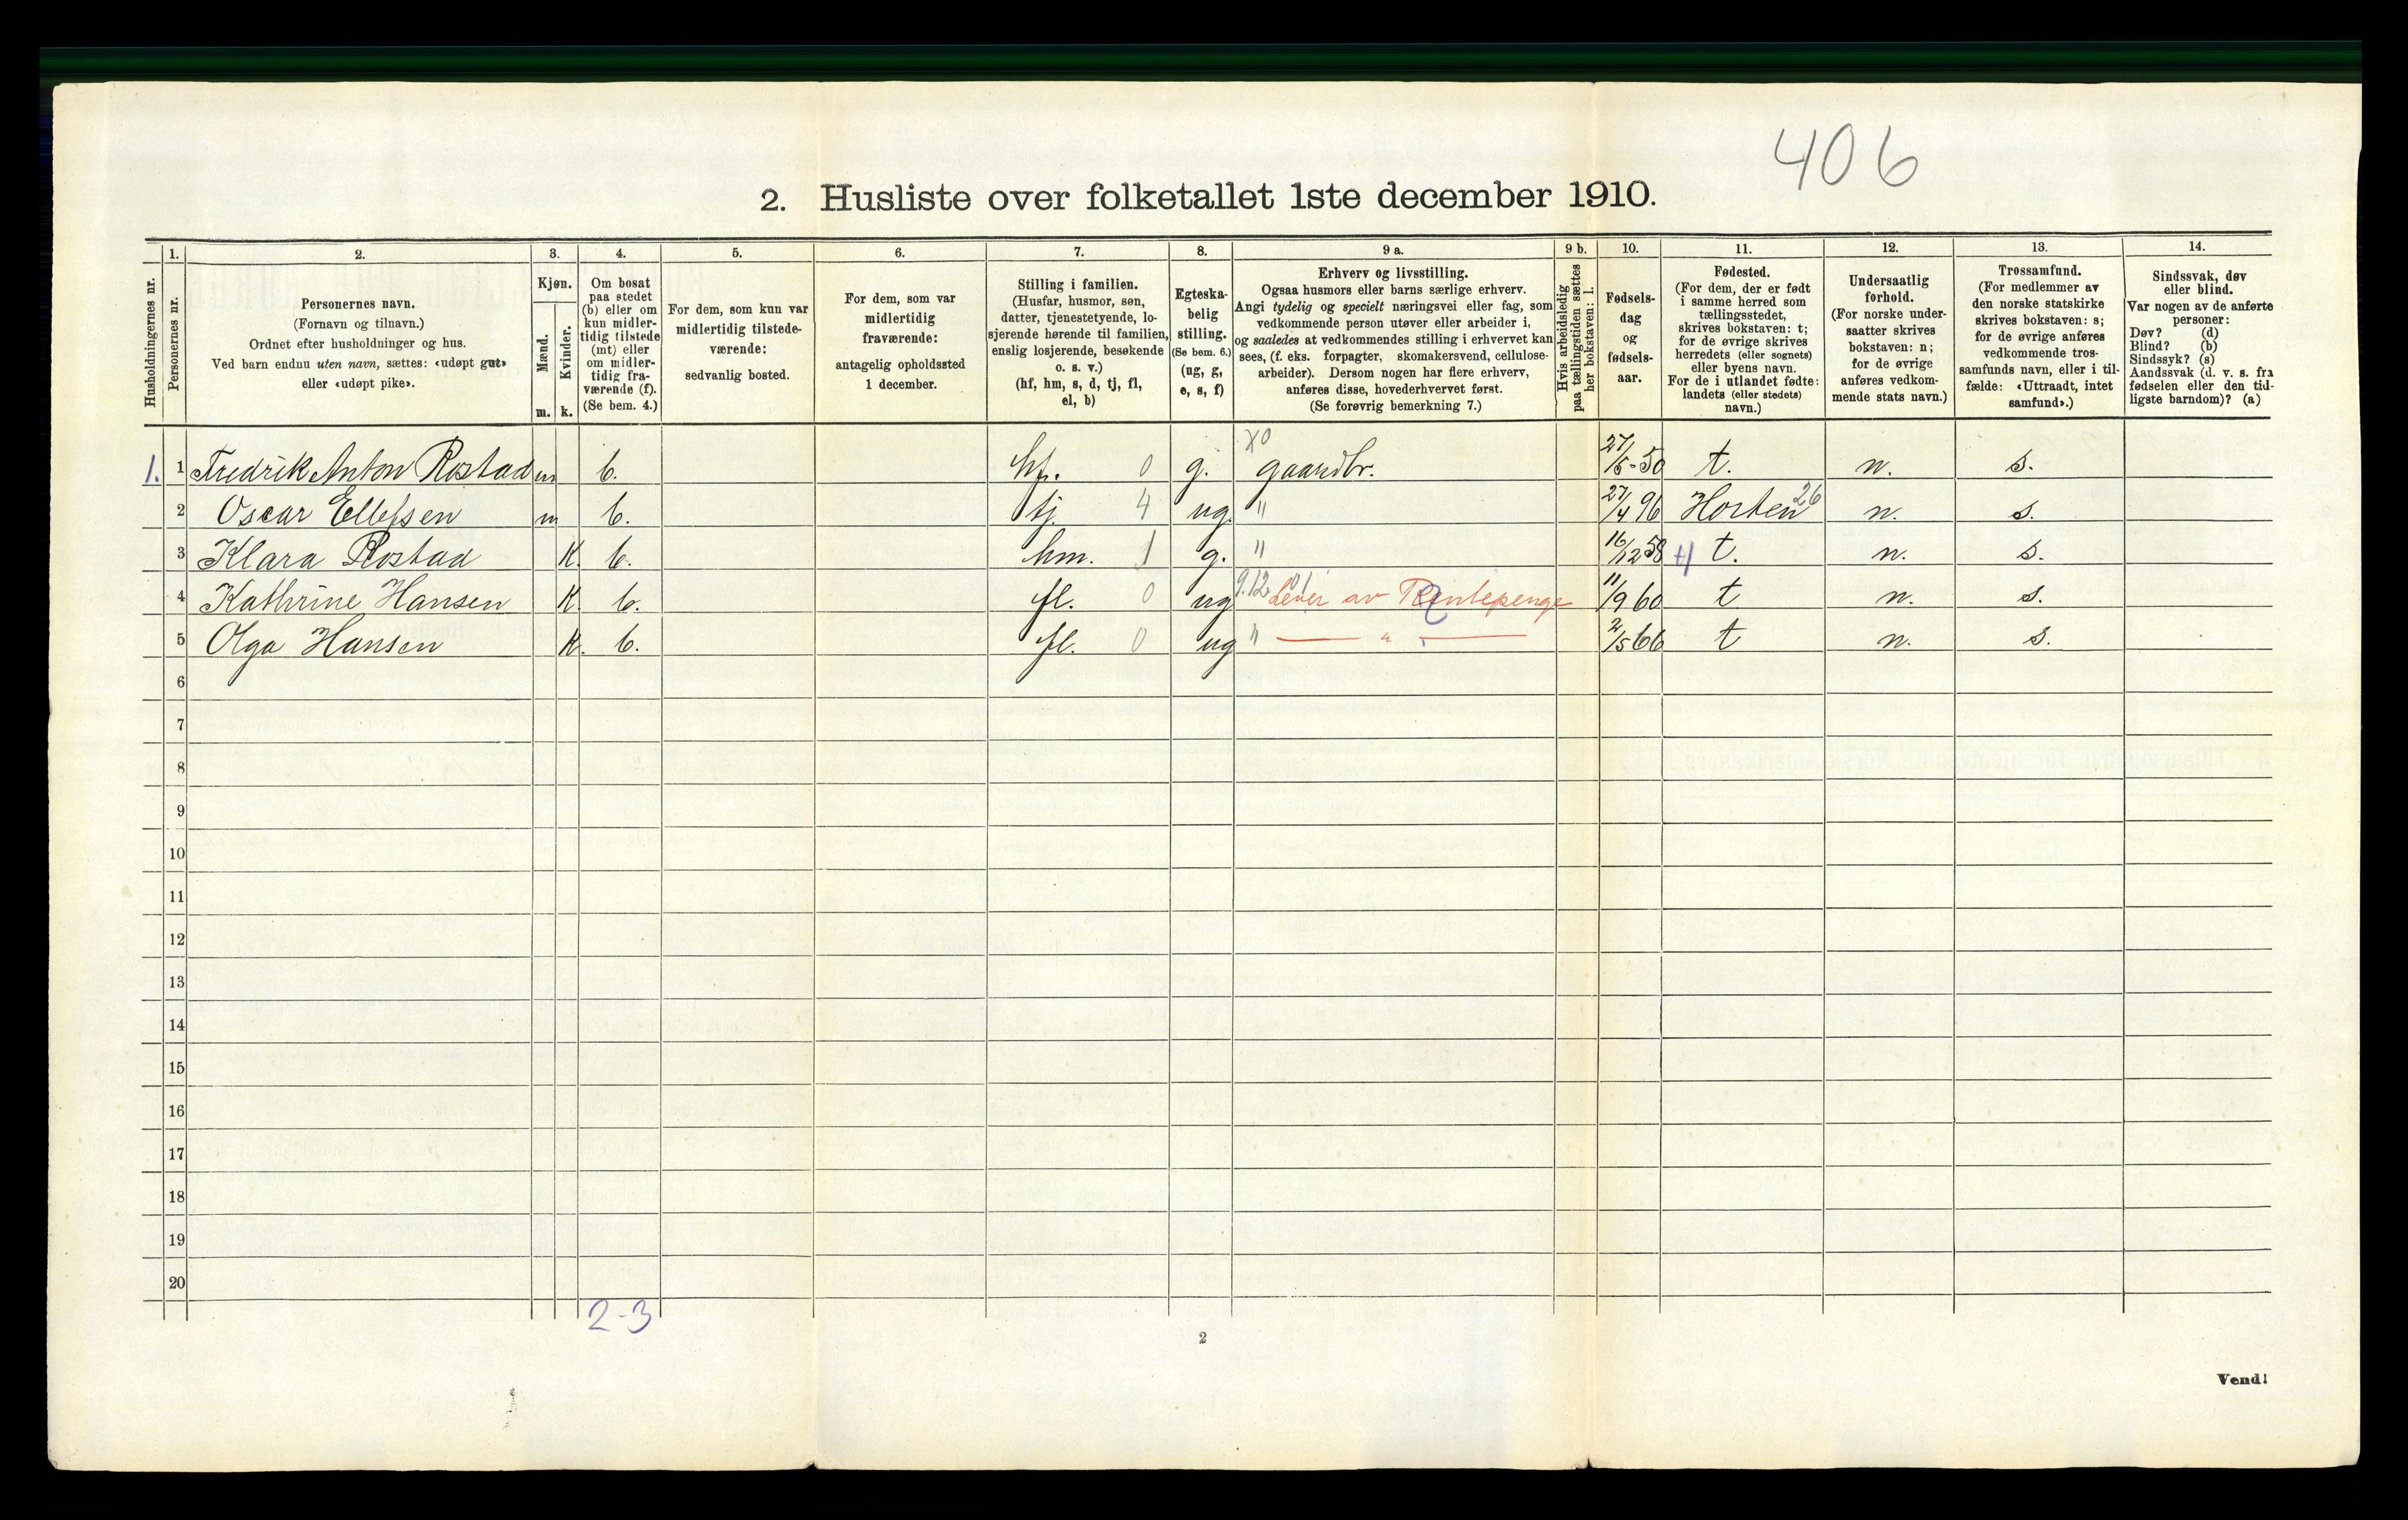 406
2. Husliste over folketallet 1ste december 1910.
Husholdningernes nr.
1.
Personernes nr.
2.
Personernes navn.
(Fornavn og tilnavn.)
Ordnet efter husholdninger og hus.
Ved barn endnu uten navn, sættes: «udøpt gut»
eller «udøpt pike».
3.
Kjøn.
Mænd.
m.
Kvinder.
k.
4.
Om bosat
paa stedet
(b) eller om
kun midler-
tidig tilstede
(mt) eller
om midler-
tidig fra-
værende (f).
(Se bem. 4.)
5.
For dem, som kun var
midlertidig tilstede-
værende:
sedvanlig bosted.
6.
For dem, som var
midlertidig
fraværende:
antagelig opholdssted
1 december.
7.
Stilling i familien.
(Husfar, husmor, søn,
datter, tjenestetyende, lo-
sjerende hørende til familien,
enslig losjerende, besøkende
o. s. v.)
(hf, hm, s, d, tj, fl,
el, b)
8.
Egteska-
belig
stilling.
(Se bem. 6.)
(ug, g,
e, s, f)
9 a.
Erhverv og livsstilling.
Ogsaa husmors eller barns særlige erhverv.
Angi tydelig og specielt næringsvei eller fag, som
vedkommende person utøver eller arbeider i,
og saaledes at vedkommendes stilling i erhvervet kan
sees, (f. eks. forpagter, skomakersvend, cellulose-
arbeider). Dersom nogen har flere erhverv,
anføres disse, hovederhvervet først.
(Se forøvrig bemerkning 7.)
9 b.
Hvis arbeidsledig
paa tællingstiden sættes
her bokstaven: l.
10.
Fødsels-
dag
og
fødsels-
aar.
11.
Fødested.
(For dem, der er født
i samme herred som
tællingsstedet,
skrives bokstaven: t;
for de øvrige skrives
herredets (eller sognets)
eller byens navn.
For de i utlandet fødte:
landets (eller stedets)
navn.)
12.
Undersaatlig
forhold.
(For norske under-
saatter skrives
bokstaven: n;
for de øvrige
anføres vedkom-
mende stats navn.)
13.
Trossamfund.
(For medlemmer av
den norske statskirke
skrives bokstaven: s;
for de øvrige anføres
vedkommende tros-
samfunds navn, eller i til-
fælde: «Uttraadt, intet
samfund».)
14.
Sindssvak, døv
eller blind.
Var nogen av de anførte
personer:
Døv? (d)
Blind? (b)
Sindssyk? (s)
Aandssvak (d. v. s. fra
fødselen eller den tid-
ligste barndom)? (a)
X0
1. 1 Fredrik Anton Rostad m b. hf. 0 g. gaardbr. 27/5-50 t. n. s.
2 Oscar Ellefsen m b. tj. 4 ug. " 27/4 96 Horten 26 n. s.
3 Klara Rostad K. b. hm. 1 g. " 16/12 58 t. n. s.
4 Kathrine Hansen K. b. fl. 0 ug 9.12 Lever av Rentepenge 11/9 60 t n. s.
5 Olga Hansen K. b. fl. 0 ug " — " — 2/5 66 t n. s.
6
7
8
9
10
11
12
13
14
15
16
17
18
19
20
2-3
2
Vend!